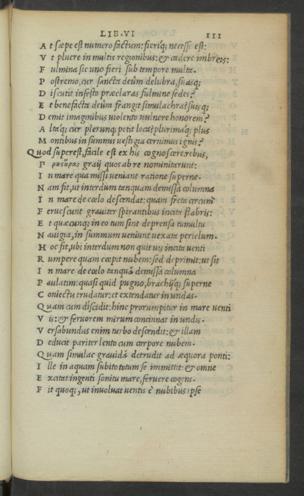 LIB. VI
111
A t sæpe est numero factum: fieriq; necesse est:
V t pluere in multis regionibus: et cadere imbreis:
F ulmina sic uno fieri sub tempore multa.
P ostremo, cur sanctæ deûm delubra, suasq;
D iscutit infesto præclaras fulmine sedes?
E t benefacta deûm frangit simulachra? suisq;
D emit imaginibus uiolento uulnere honorem?
A ltaq; cur plerunq; petit loca? plurimaq; plus
M ontibus in summis uestigia cernimus ignis?
Quod superest, facile est ex his cognoscere rebus,
P graij quos ab re nominitarunt:
I n mare qua missi ueniant ratione superne.
N am fit, ut interdum tanquam demissa columna
I n mare de cælo descendat: quam freta circum
F eruescunt grauiter spirantibus incita flabris:
E t quæcunq; in eo tum sint deprensa tumultu
N auigia, in summum ueniunt uexata periclum.
H oc fit, ubi interdum non quit uis incita uenti
R umpere quam cœpit nubem: sed deprimit: ut sit
I n mare de cœlo tanquã demissa columna
P aulatim: quasi quid pugno, brachijq; superne
C oniectu trudatur: et extendatur in undas.
Quam cum discidit: hinc prorumpitur in mare uenti
V is: et feruorem mirum concinnat in undis.
V ersabundus enim turbo descendit: et illam
D educit pariter lento cum corpore nubem.
Quam simulac grauidã detrudit ad æquora ponti:
I lle in aquam subito totum se immittit: et omne
E xcitat ingenti sonitu mare, feruere cogens.
F it quoq;, ut inuoluat uentis è nubibus ipse